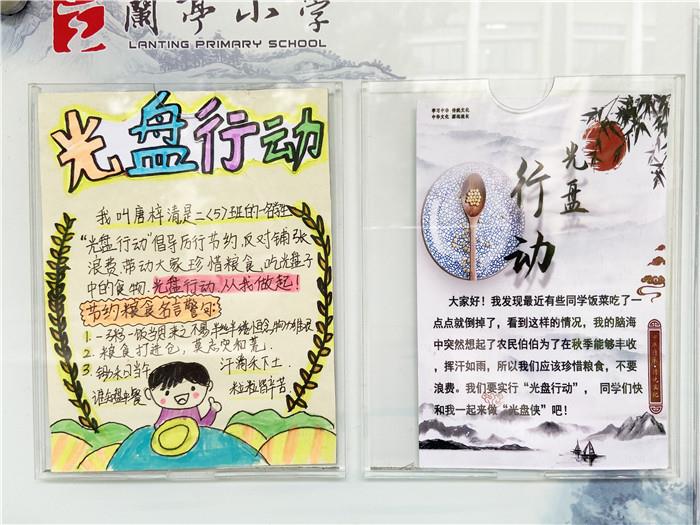 蘭亭小学
LANTING PRIMARY SCHOOL
光盘行动
我叫唐梓清是二〈5〉班的一名学生
“光盘行动”倡导厉行节约,反对铺张
浪费,带动大家珍惜粮食,吃光盘子
中的食物.光盘行动,从我做起!
节约粮食名言警句:
1. 一粥一饭当思来之不易
2. 粮食打进仓,莫忘灾和荒.
3. 锄禾日当午 汗滴禾下土.
谁知盘中餐 粒粒皆辛苦.
学习中华 传统文化
中华文化 源远流长
光盘
行动
大家好!我发现最近有些同学饭菜吃了一
点点就倒掉了,看到这样的情况,我的脑海
中突然想起了农民伯伯为了在秋季能够丰收
,挥汗如雨,所以我们应该珍惜粮食,不要
浪费。我们要实行“光盘行动”, 同学们快
和我一起来做“光盘侠”吧!